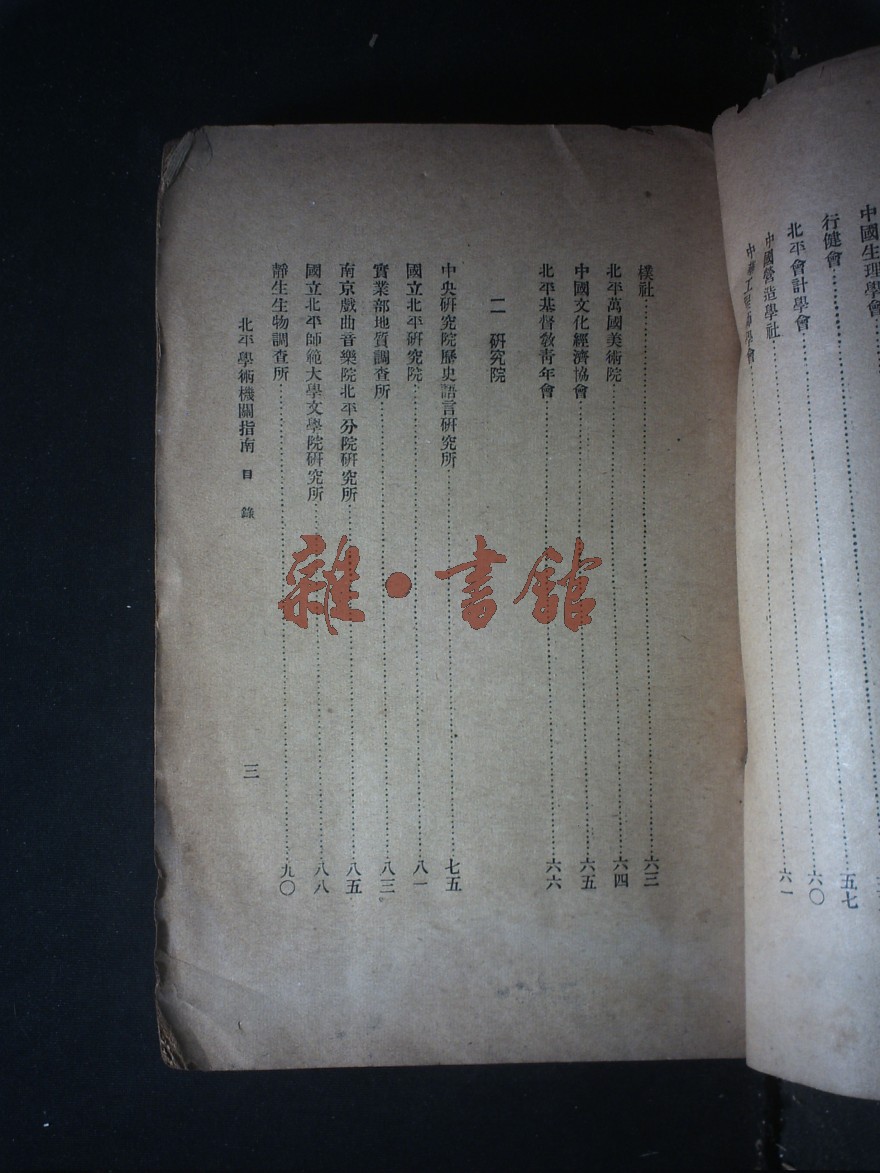 中國生理學會
行健會……五七
北平會計學會……六〇
中國營造學社……六一
中華工程師學會
樸社……六三
北平萬國美術院……六四
中國文化經濟協會……六五
北平基督敎靑年會……六六
二 硏究院
中央硏究院歷史語言硏究所……七五
國立北平硏究院……八一
實業部地質調查所……八三
南京戲曲音樂院北平分院硏究所……八五
國立北平師範大學文學院硏究所……八八
靜生生物調查所……九〇
北平學術機關指南 目錄
三
雜·書館